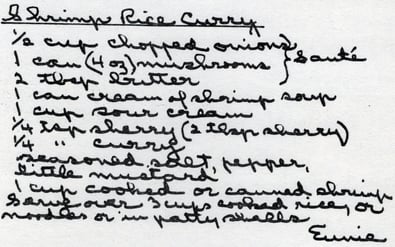 Shrimp Rice Curry
1/2 cup chopped onions
1 can (4 oz) mushrooms } Sauté
2 tbsp butter
1 can cream of shrimp soup
1 cup sour cream
1/4 tsp sherry (2 tbsp sherry)
1/4 " curry
seasoned salt, pepper,
little mustard
1 cup cooked or canned shrimp
Serve over 3 cups cooked rice, or
noodles or in patty shells
Eunie